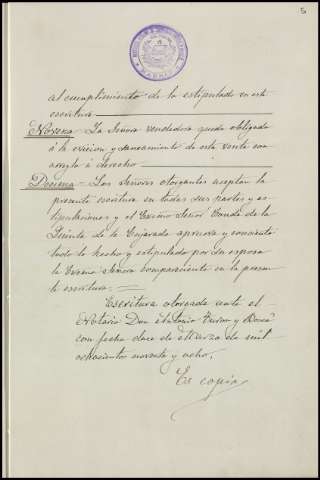 5
al cumplimiento de lo estipulado en esta
escritura
Novena - La Señora vendedora queda obligada
á la evicion y saneamiento de esta venta con
arreglo á derecho
Decima - Los Señores otorgantes aceptan la
presente escritura en todas sus partes y es-
tipulaciones y el Excmo Señor Conde de la
Quinta de la Enjarada aprueba y consiente
todo lo hecho y estipulado por su esposa
la Excma Señora compareciente en la presen-
te escritura
Escritura otorgada ante el
Notario Don Antonio Turon y
con fecha doce de Marzo de mil
ochocientos noventa y ocho.
Es copia